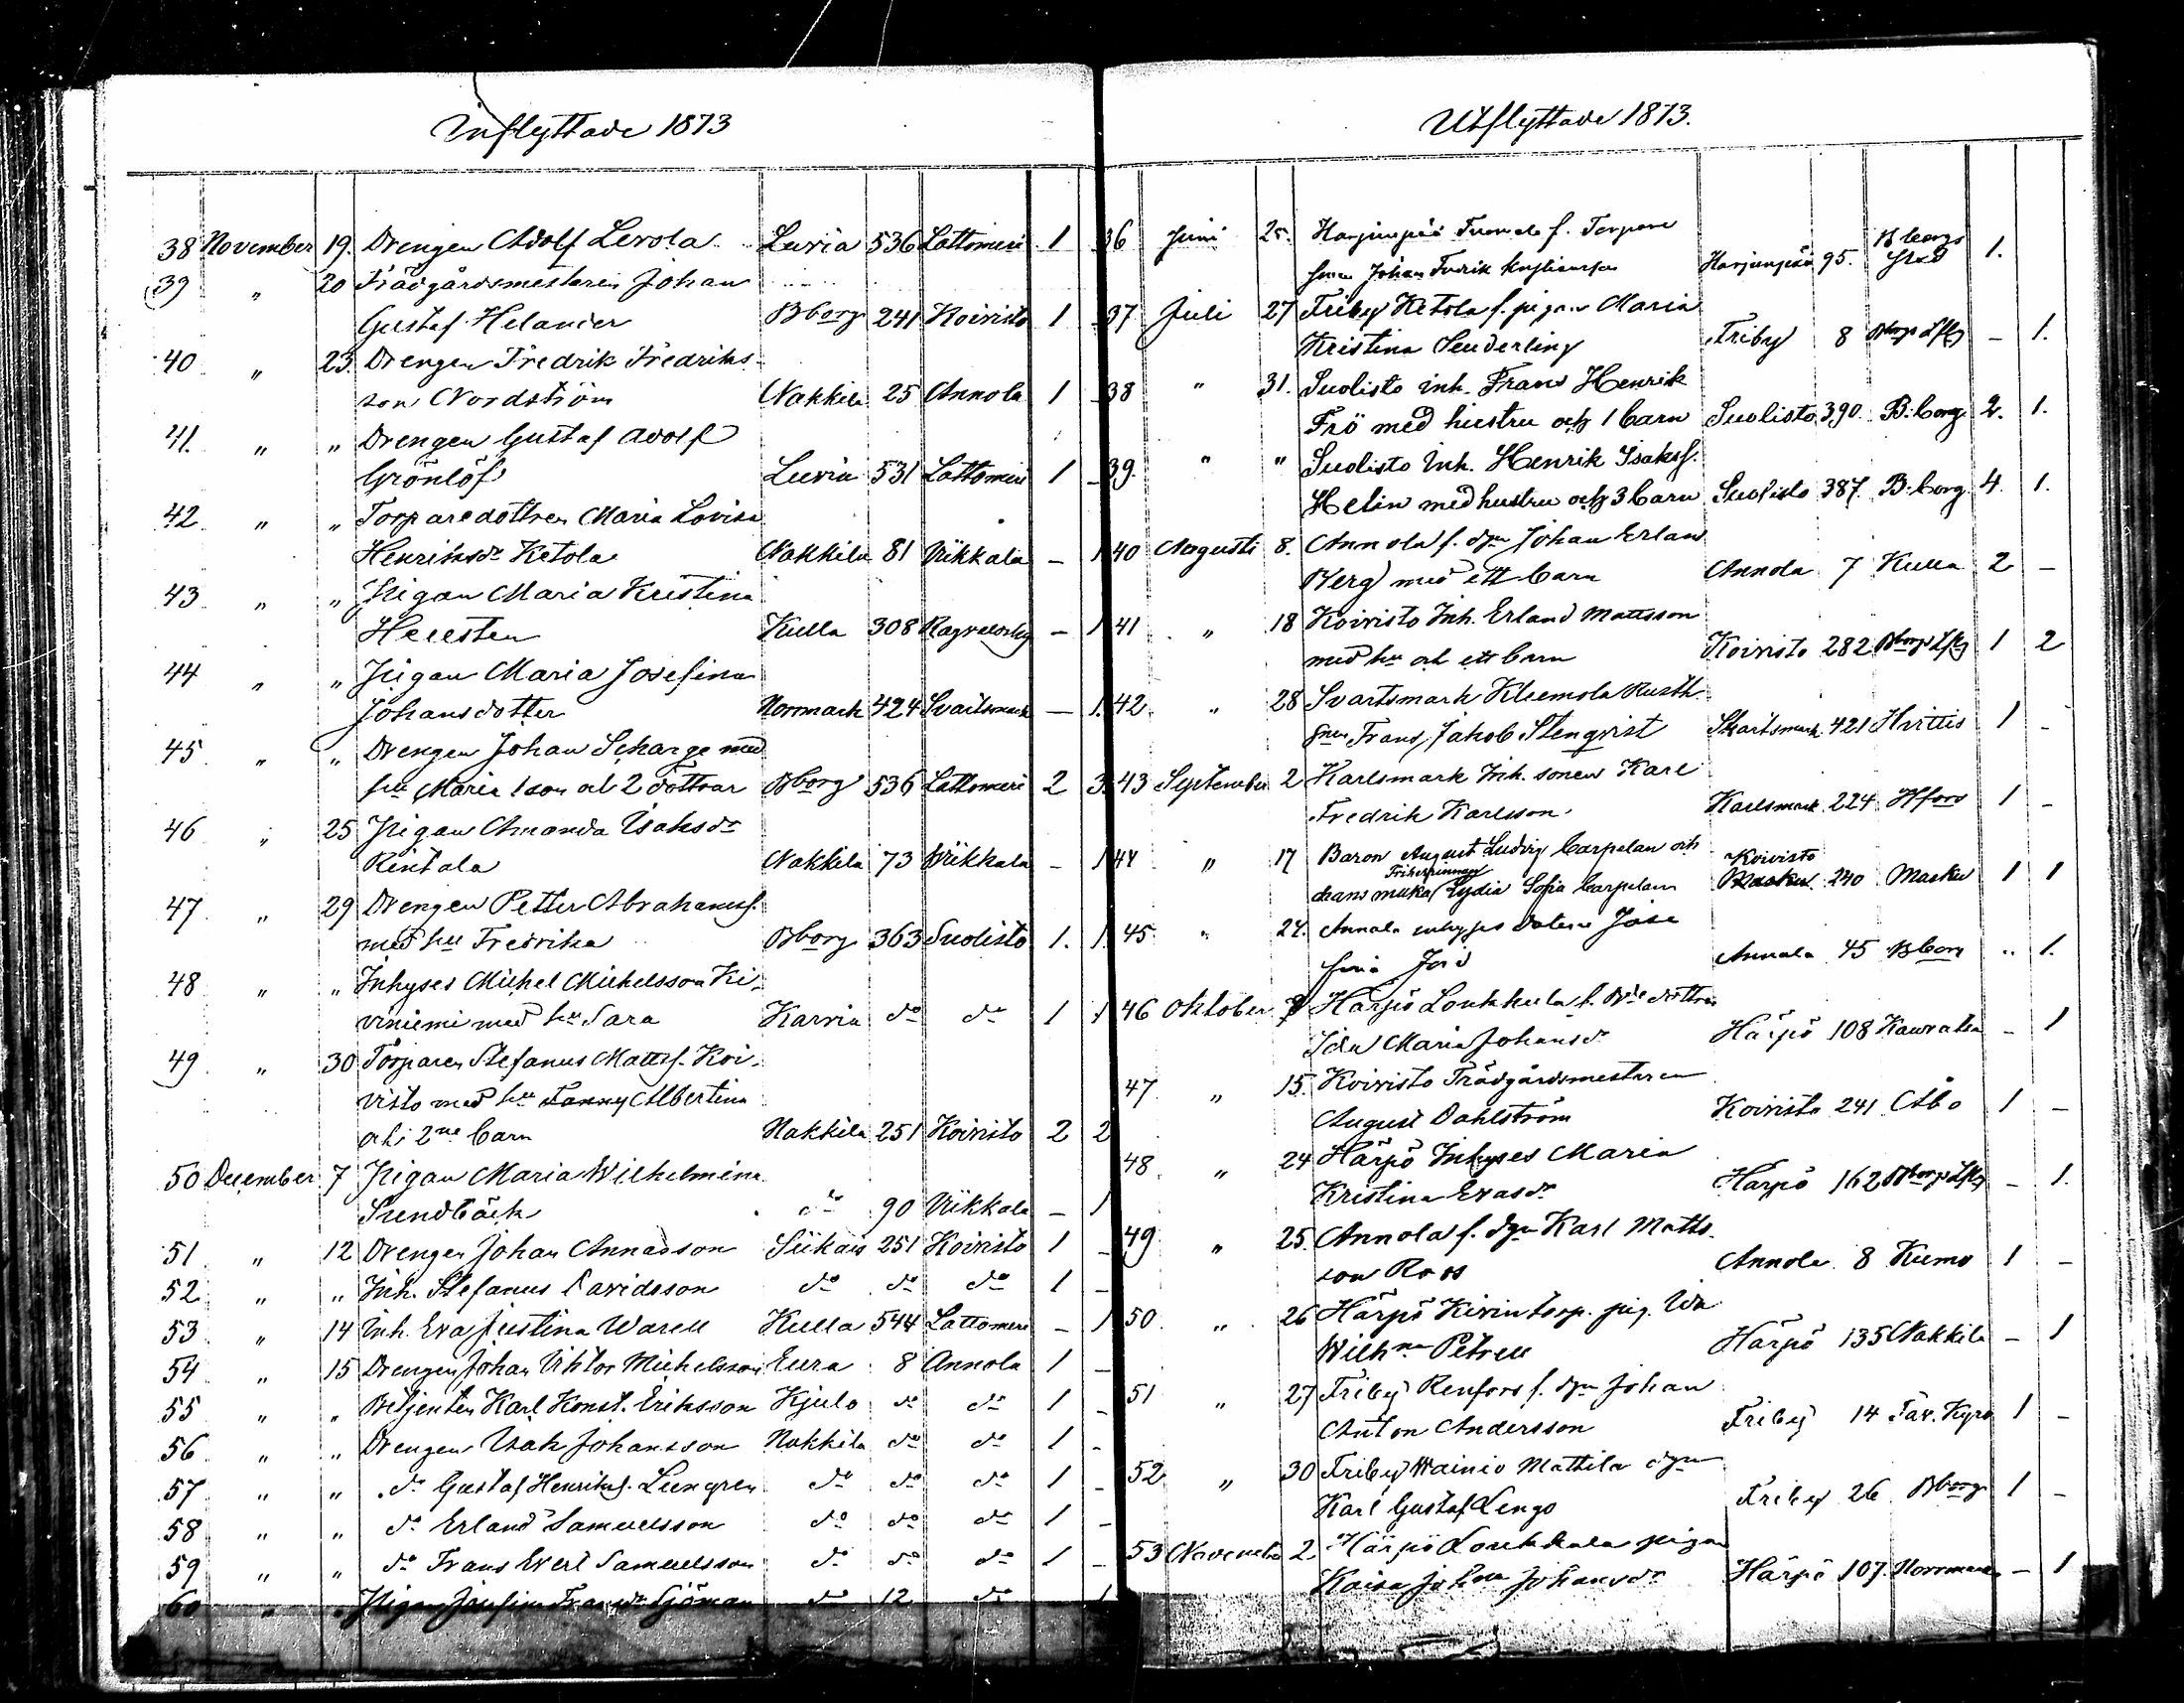 Inflyttade 1873
38 November 19. Drengen Adolf Levola Luvia 536 Lattomeri 1
39 " 20 Trädgårdsmestaren Johan
Gustaf Helander Bborg 241 Koivisto 1
40 " 23. Drengen Fredrik Fredriks-
son Nordström Nakkila 25 Annola 1 -
41. " " Drengen Gustaf Adolf
Grönlöf Luvia 531 Lattomeri 1 -
42 " " Torparedottren Maria Lovisa
Henriksdr Ketola Nakkila 81 Wikkala - 1
43 " " Pigan Maria Kristina
Hellsten Kulla 308 Ragvaldsby - 1
44 " " Pigan Maria Josefina
Johansdotter Norrmark 424 Svartsmark - 1.
45 " " Drengen Johan Scharge med
hu Maria 1 son och 2 döttrar Bborg 536 Lattomeri 2 3.
46 " 25 Pigan Amanda Isaksdr
Rintala Nakkila 73 Wikkala - 1
47 " 29 Drengen Petter Abrahamss.
med hu Fredrika Bborg 363 Suolisto 1. 1.
48 " " Inhyses Michel Michelsson Ki-
viniemi med hu Sara Karvia do do 1 1
49 " 30 Torparen Stefanus Matts. Koi-
visto med hu Fanny Albertina
och 2ne barn Nakkila 251 Koivisto 2 2
50 December 7 Pigan Maria Wilhelmina
Sundbäck do 90 Wikkala - 1
51 " 12 Drengen Johan Annasson Siikais 251 Koivisto 1 -
52 " " Inh. Stefanus Davidsson do do do 1 -
53 " 14 Inh. Eva Justina Warell Kulla 544 Lattomeri - 1
54 " 15 Drengen Johan Viktor Michelsson Eura 8 Annola 1 -
55 " " Betjenten Karl Konst. Eriksson Kjulo do do 1 -
56 " " Drengen Isak Johansson Nakkila do do 1 -
57 " " do Gustaf Henrikss. Lungren do do do 1 -
58 " " do Erland Samuelsson do do do 1 -
59 " " do Frans Evert Samuelsson do do do 1 -
60 " " Pigan Josefina Fransdr Sjöman do 12 do 1
Utflyttade 1873.
36 Juni 25. Harjunpää f. Torpare
Johan Fredrik Harjunpää 95. Bborgs stad 1.
37 Juli 27 Friby Ketola f. pigan Maria
Kristina Senderling Friby 8 Bborgs Lfg - 1.
38 " 31. Suolisto inh. Frans Henrik
Frö med hustru och 1 barn Suolisto 390. B.borg 2. 1.
39. " " Suolisto Inh. Henrik Isakss.
Helin med hustru och 3 barn Suolisto 387. B.borg 4. 1.
40 Augusti 8. Annola f. dgn Johan Erland
Berg med ett barn Annola 7 Kulla 2 -
41 " 18 Koivisto Inh. Erland Mattsson
med hu och ett barn Koivisto 282 Bborgs Lfg 1 2
42. " 28 Svartsmark Kleemola Rusth.
sonen Frans Jakob Stenqvist Svartsmark 421 Hvittis 1 -
43 September 2 Karlsmark Inh. sonen Karl
Fredrik Karlsson Karlsmark 224 Hfors 1 -
44 " 17 Baron August Ludvig Carpelan och
Friherrinnan
dess maka Lydia Sofia Carpelan Koivisto 240 Masku 1 1
45 " 24. Annala inhyses dotern Jose
fina Annala 45 Bborg .. 1.
46 Oktober 9 Härpö Loukkula f. dottren
Ida Maria Johansdr Härpö 108 Kauvatsa - 1
47 " 15. Koivisto Trädgårdsmestaren
August Dahlström Koivisto 241 Åbo 1 -
48 " 24 Härpö Inhyses Maria
Kristina Evasdr Härpö 162 Bborgs Lfg - 1.
49 " 25. Annola f. dgn Karl Matts-
son Roos Annola 8 Kumo 1 -
50 " 26 Härpö Kivin torp. pig. Ida
Wilhna Petrell Härpö 135 Nakkila - 1
51 " 27 Friby Renfors f. dgn Johan
Anton Andersson Friby 14 Tav. Kyro 1 -
52 " 30 Friby Wainio Mattila dgn
Karl Gustaf Lengo Friby 26 Bborg 1 -
53 November 2 Härpö Loukkala pigan
Kaisa Johna Johansdr Härpö 107. Norrmark - 1